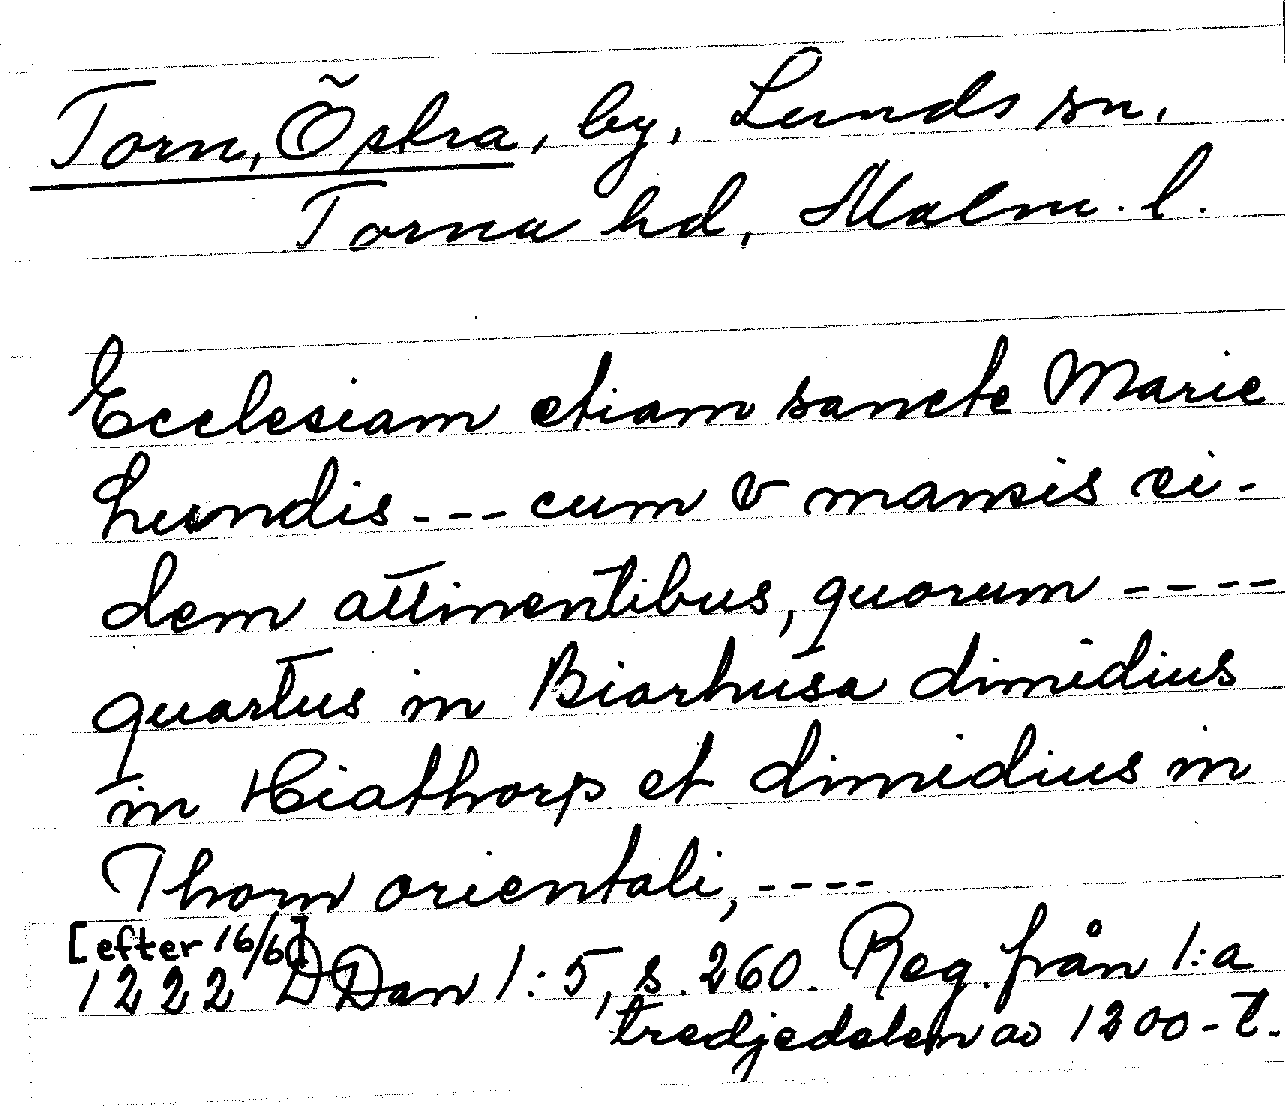 Torn, Östra, by, Lunds sn,
Torna hd, Malm. l.
Ecclesiam etiam sancte Marie
Lundis --- cum v mansis ei-
dem attinentibus, quorum ----
quartus in Biarhusa dimidius
in Hiathorp et dimidius in
Thorn orientali, ----
[efter 16/6]
1222 DDan 1:5, s. 260. Reg. från 1:a
tredjedelen av 1200-t.